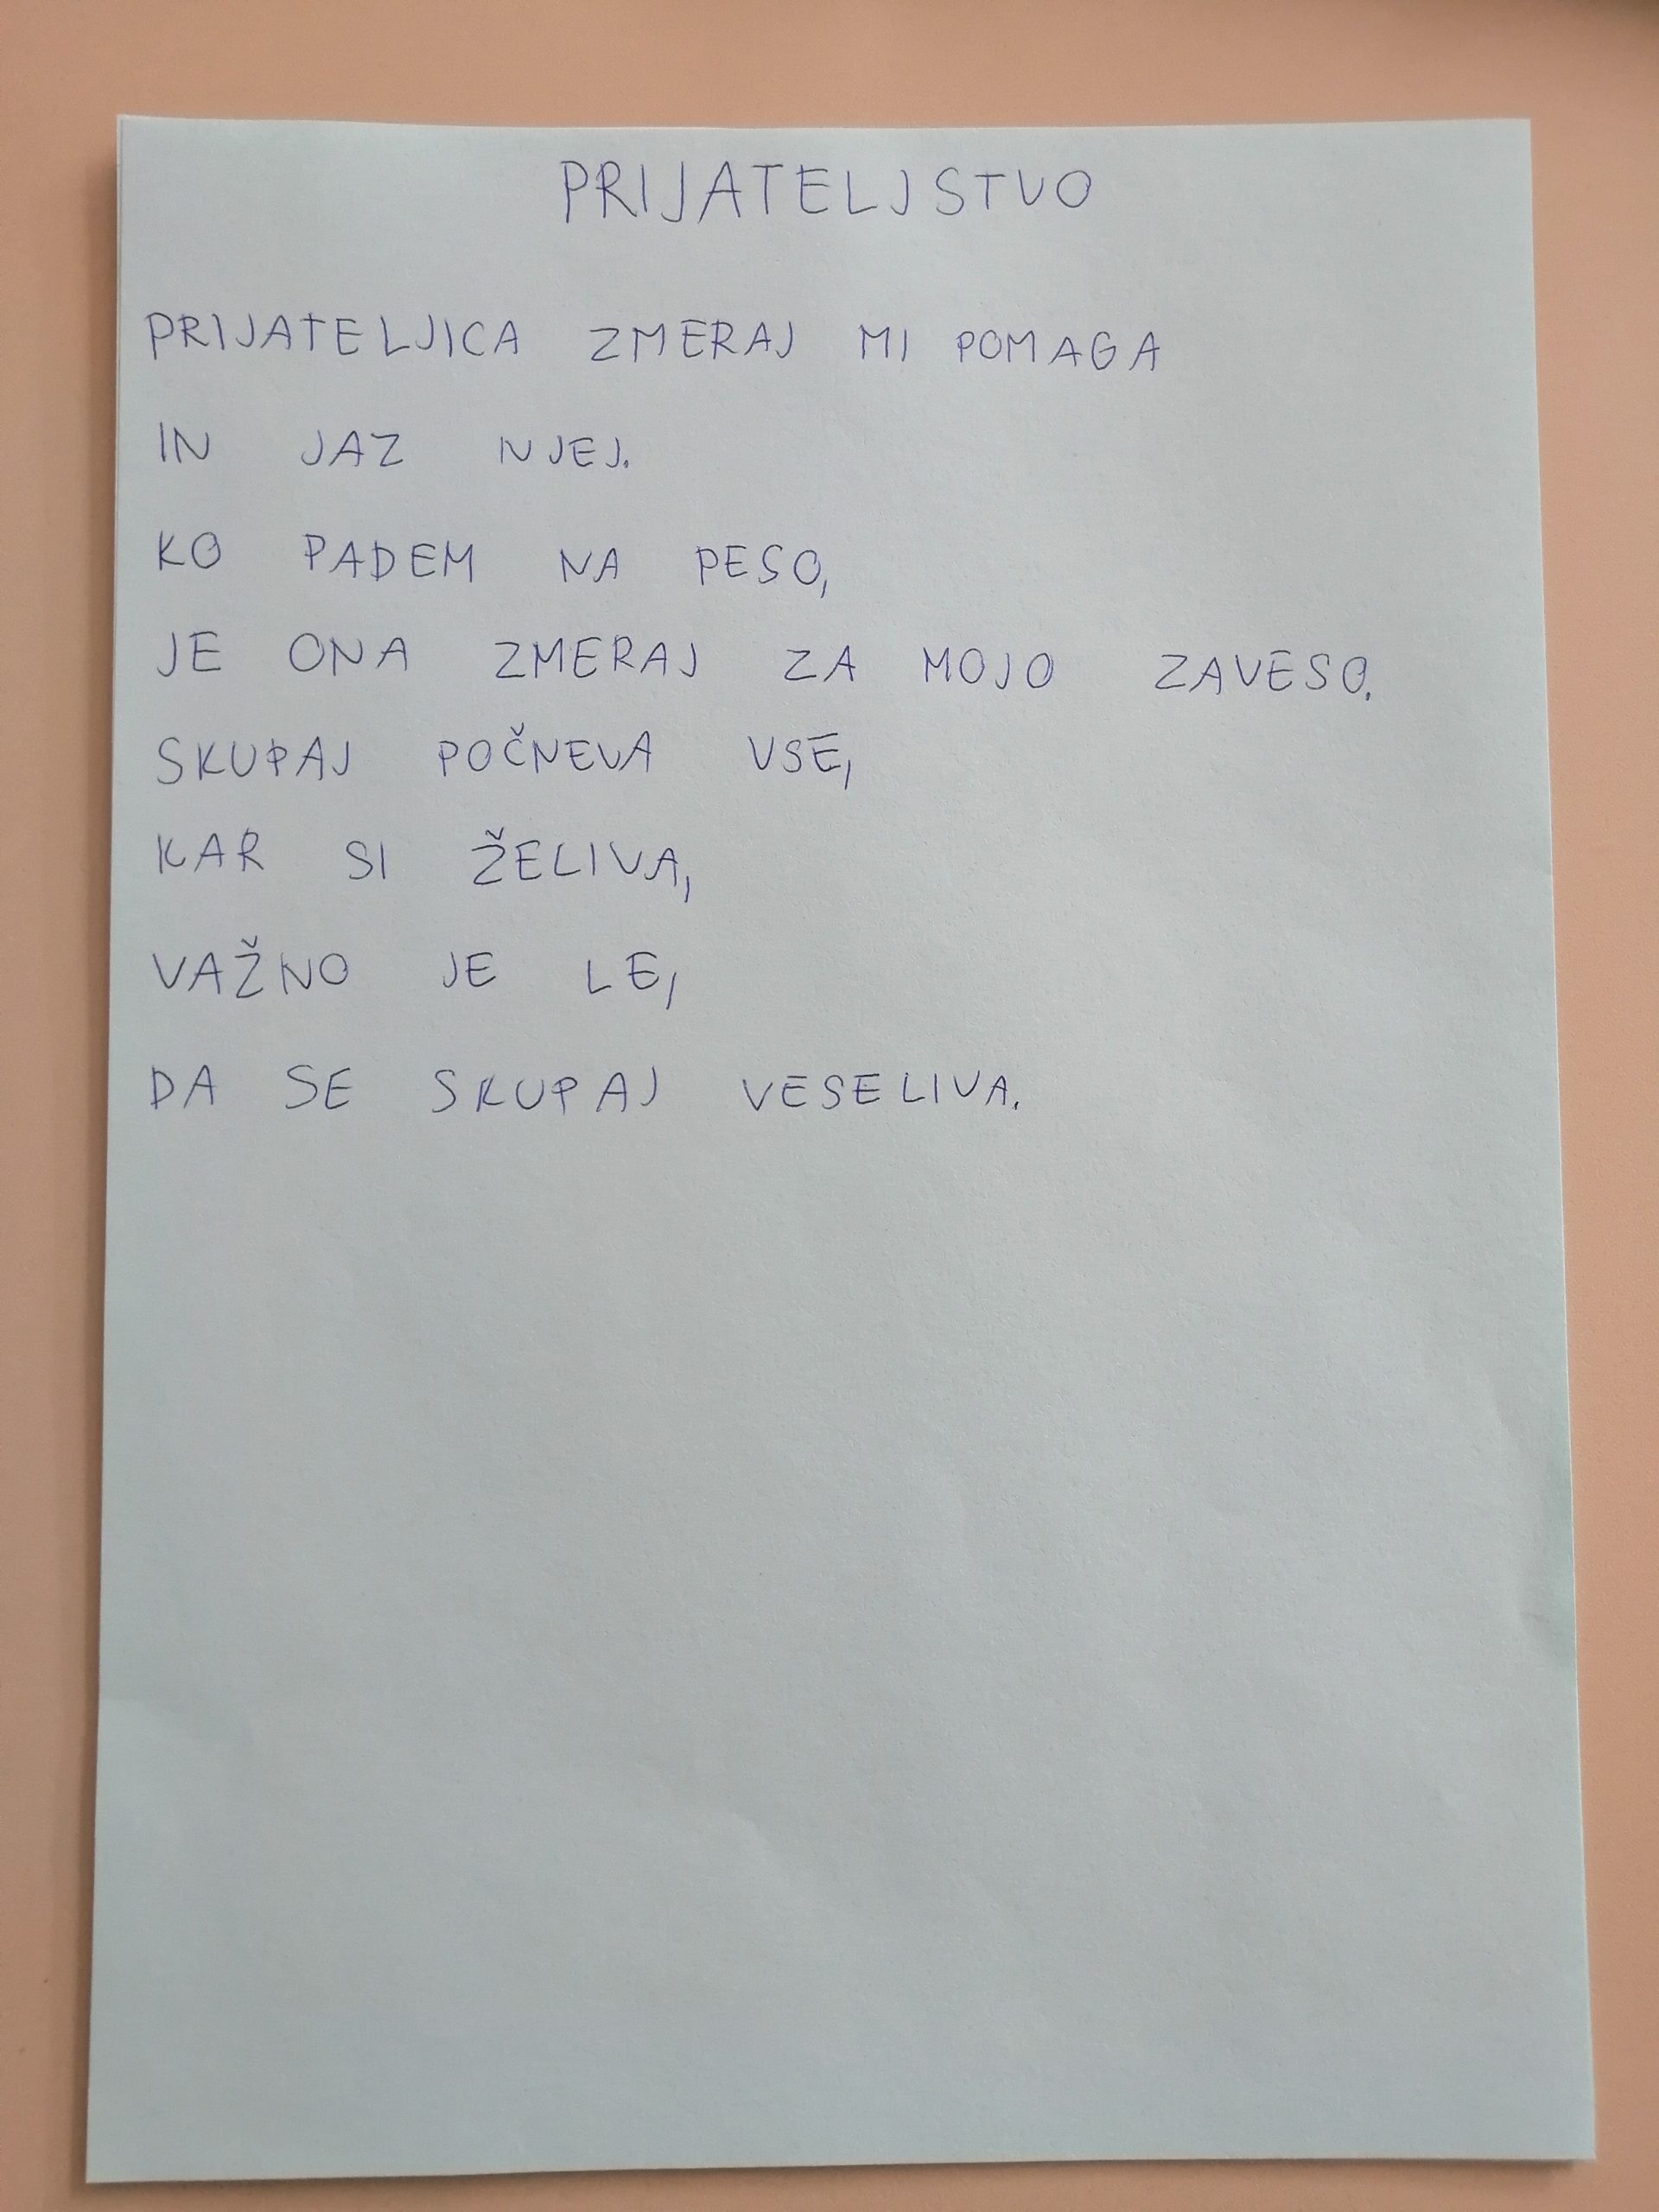 PRIJATELJSTVO
PRIJATELJICA ZMERAJ MI POMAGA
IN JAZ NJEJ.
KO PADEM NA PESO,
JE ONA ZMERAJ ZA MOJO ZAVESO.
SKUPAJ POČNEVA VSE,
KAR SI ŽELIVA,
VAŽNO JE LE,
DA SE SKUPAJ VESELIVA.